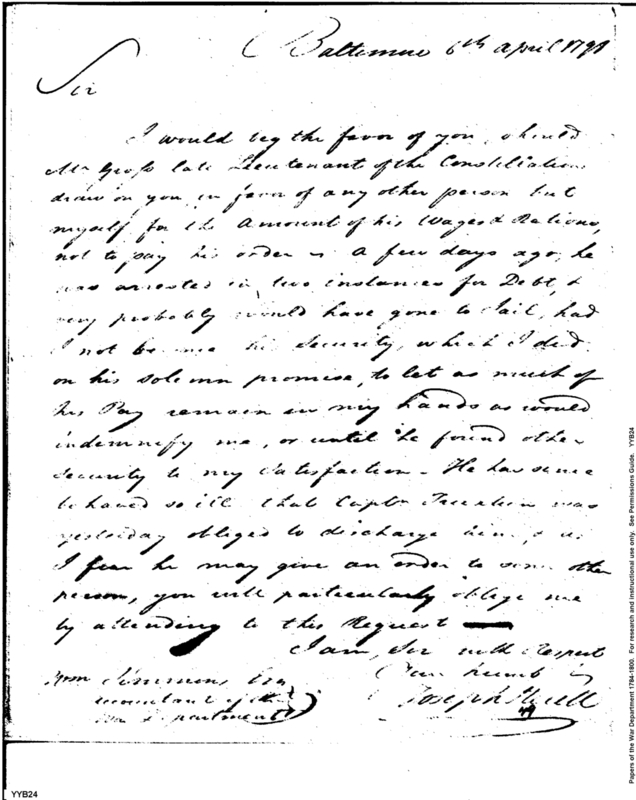 Baltimore 6th April 1798
Sir
I would beg the favor of you, should
Mr Gross late Lieutenant of the Constellation
draw on you in favor of any other person but
myself for the Amount of his Wages & Rations,
not to pay his order as a few days ago, he
was arrested in two instances for Debt, &
very probably would have gone to Jail, had
I not become his Security, which I did
on his solemn promise, to let as much of
his Pay remain in my hands as would
indemnify me, or until he found other
security to my satisfaction - He has since
behaved so ill that Captn Truxtun was
yesterday obliged to discharge him, & as
I fear he may give an order to some other
person, you will particularly oblige me
by attending to this Request
I am, Sir with Respect
Your humb
Wm Simmons Esq
Joseph
Accountant of the
War Department
YYB24
Papers of the War Department 1784-1800. For research and instructional use only. See Permissions Guide. YYB24